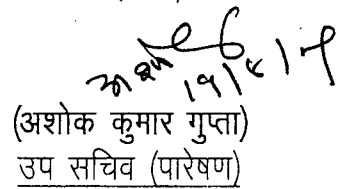 (अशोक कुमार गुप्ता)
उप सचिव (पारेषण)